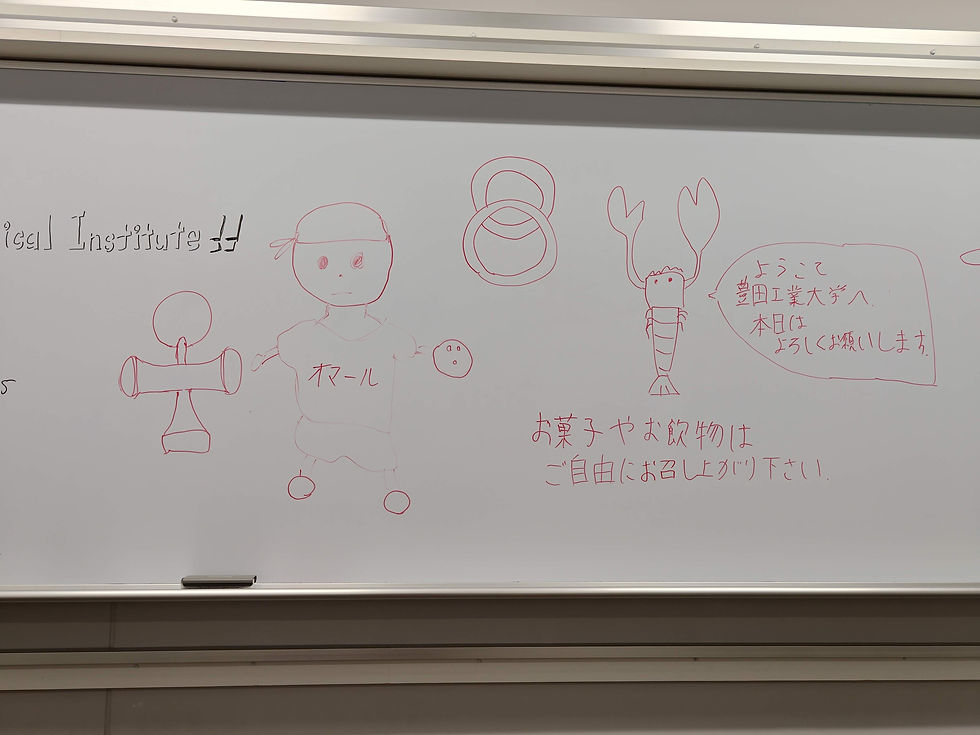 ical Institute!!
オマール
ようこそ
豊田工業大学へ.
本日は
よろしくお願いします.
お菓子やお飲物は
ご自由にお召し上がり下さい.